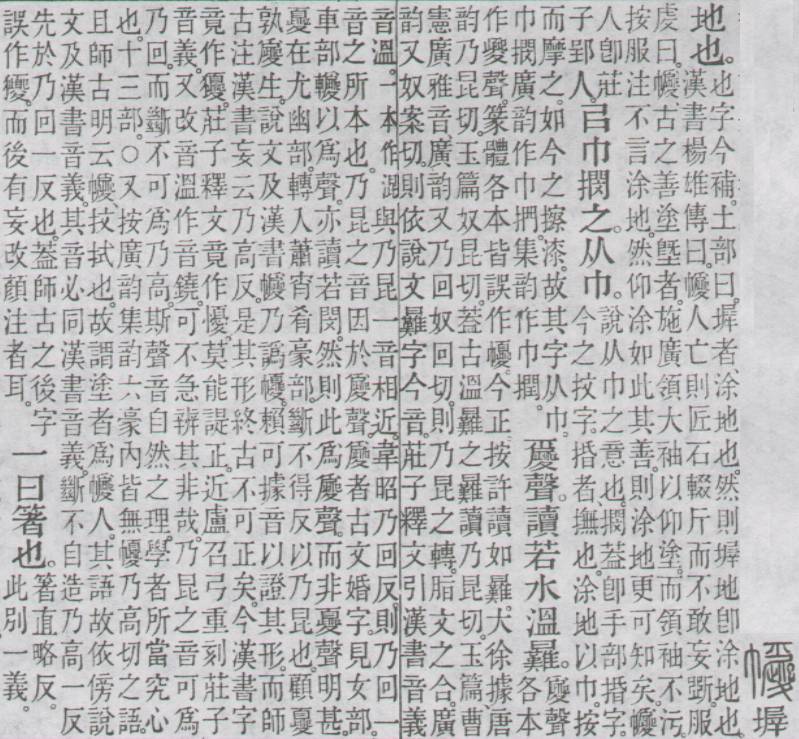 墀
地也。也字今補。土部曰。墀者、涂地也。然則墀地卽涂地也。
漢書楊雄傳曰。𢅼人亡則匠石輟斤而不敢妄斲。服
虔曰。𢅼、古之善塗塈者。施廣領大袖以仰塗。而領袖不污。
按服注不言涂地。然仰涂如此其善。則涂地更可知矣。𢅼
人卽莊
子郢人。
㠯巾撋之。从巾。
說从巾之意也。撋葢卽手部捪字。
今之抆字。捪者、撫也。涂地以巾。按
而摩之。如今之擦漆。故其字从巾。
巾撋廣韵作巾捫。集韵作巾撋。
聲。讀若水溫㬮。
聲
各本
作夒聲。篆體各本皆誤作𢅼。今正。按許讀如㬮。大徐據唐
韵乃昆切。玉篇奴昆切。葢古溫㬮之㬮讀乃昆切。玉篇、曹
憲廣雅音、廣韵又乃回奴回切。則乃昆之轉。脂文之合。廣
韵又奴案切。則依說文㬮字今音。莊子釋文引漢書音義
音溫。一本作混。與乃昆一音相近。韋昭乃回反。則乃回一
音之所本也。乃昆之音因於聲。者古文婚字。見女部。
車部以爲聲。亦讀若閔。然則此爲聲。而非夒聲明甚。
夒在尤幽部。轉入蕭宵肴豪部。斷不得反以乃昆也。顧夒
孰生。說文及漢書𢅼乃譌𢅼。賴可據音以證其形。而師
古注漢書妄云乃高反。是其形終古不可正矣。今漢書字
竟作獶。莊子釋文竟作㥿。莫能諟正。近盧召弓重刻莊子
音義。又改音溫作音鐃。可不急辨其非哉。乃昆之音可爲
乃回。而斷不可爲乃高。斯聲音自然之理。學者所當究心
也。十三部。○又按廣韵集韵六豪內皆無𢅼乃高切之語。
且師古明云𢅼、抆拭也。故謂塗者爲𢅼人。其語故依傍說
文及漢書音義。其音必同漢書音義。斷不自造乃高一反
先於乃回一反也。葢師古之後字
誤作。而後有妄改顏注者耳。
一曰箸也。
箸直略反。
此別一義。